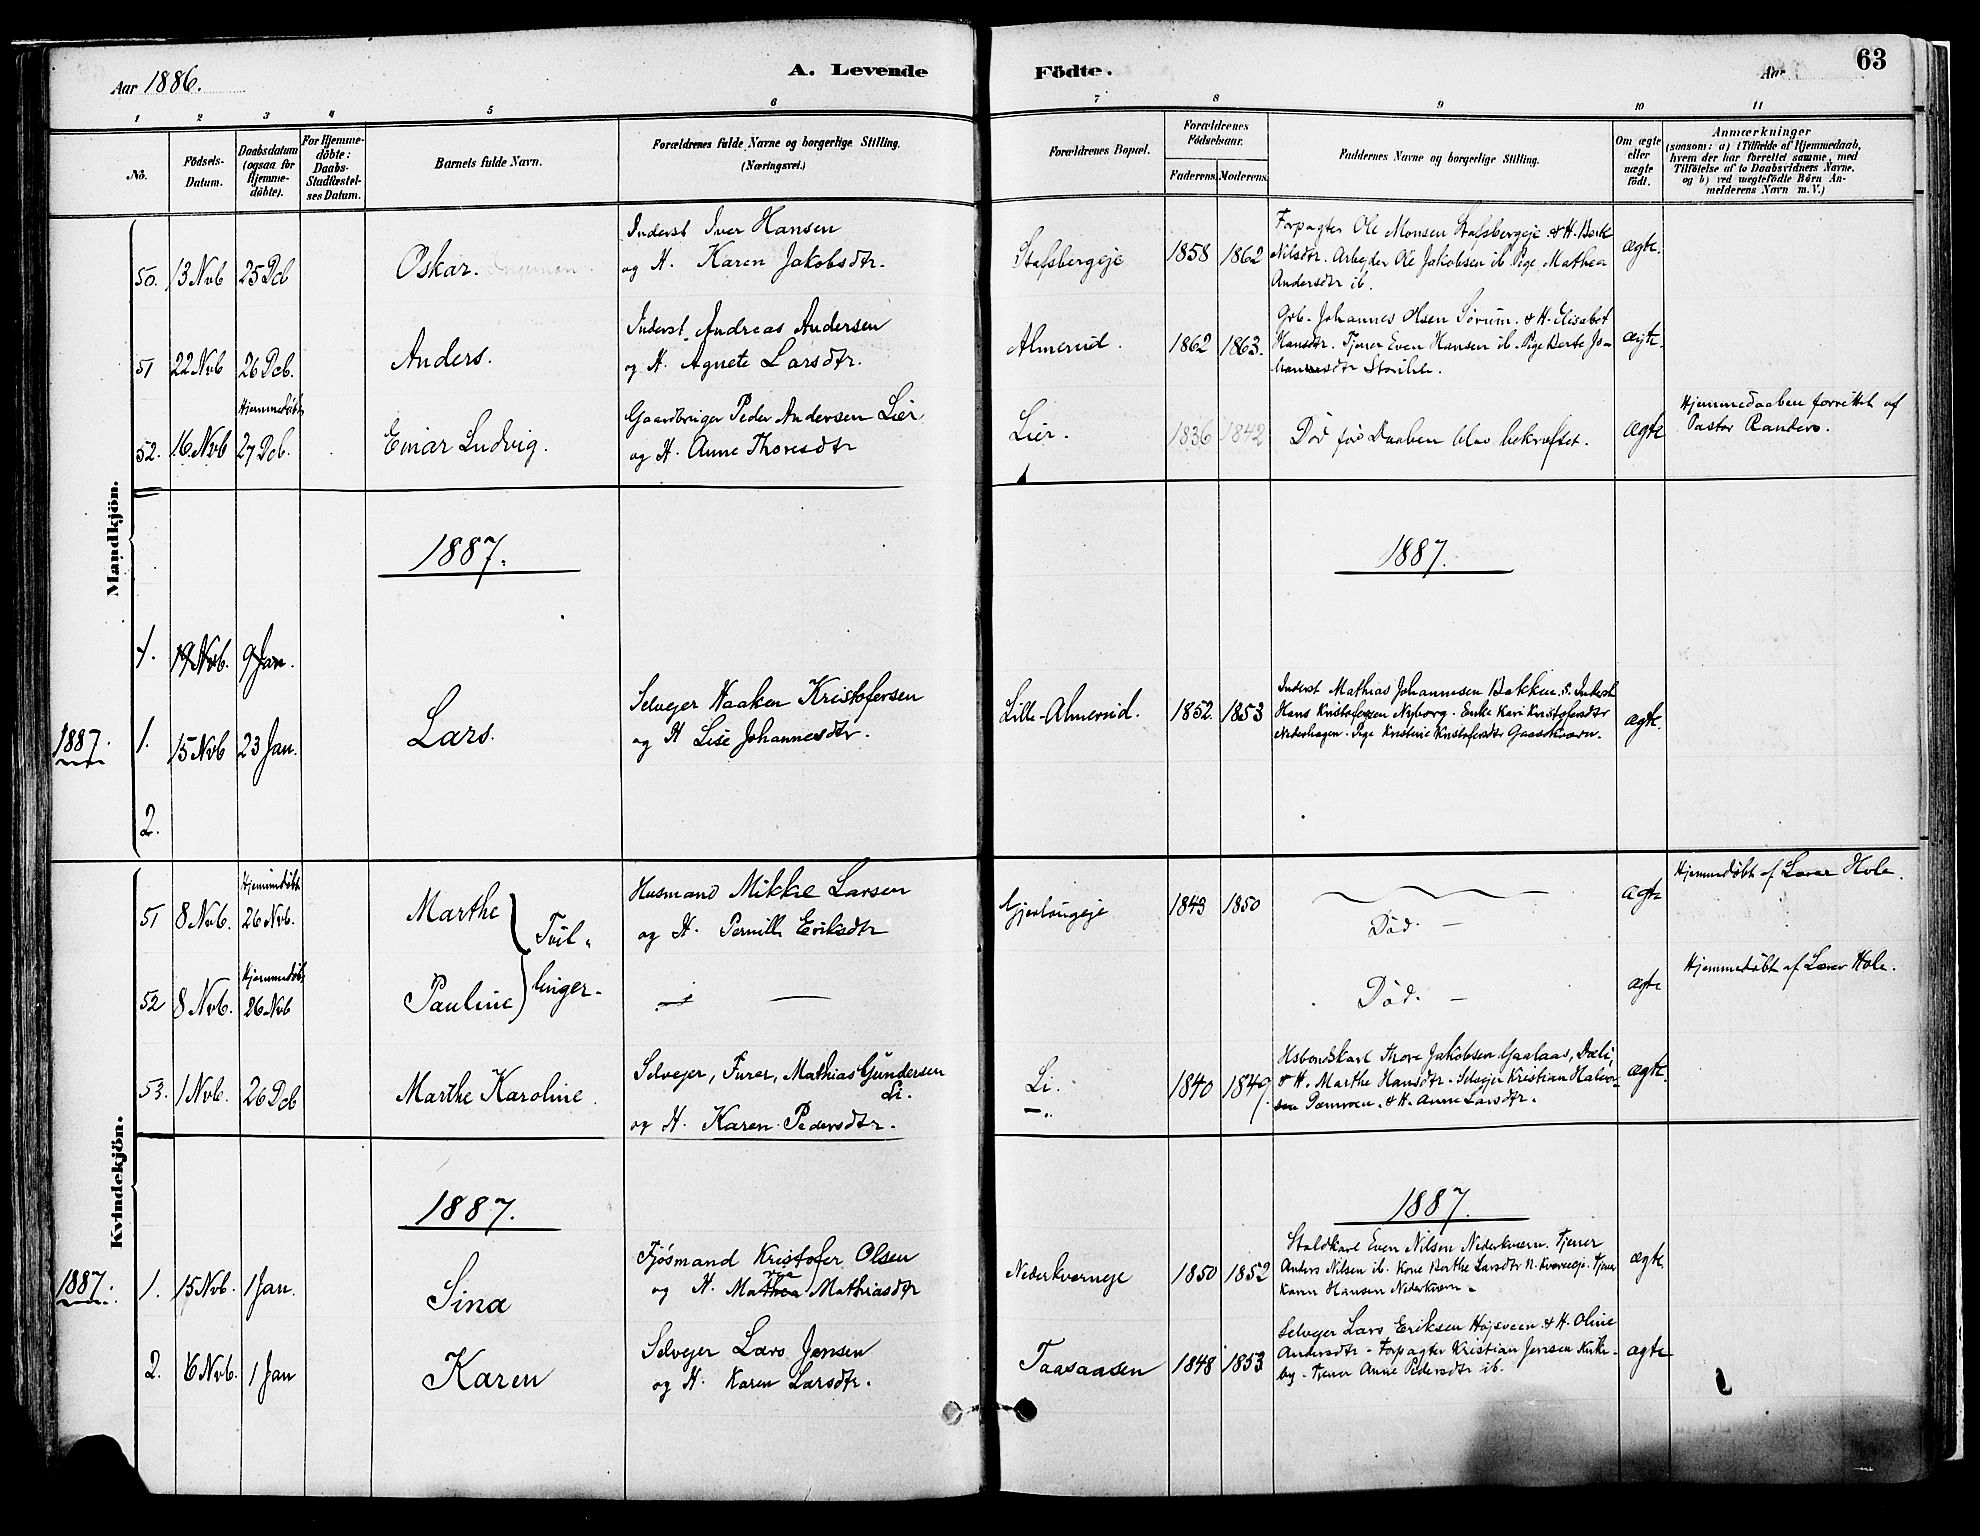 Aar 1886.
A. Levende
Födte.
Aar
63
1 2 3 4 5 6 7 8 9 10 11
No.
Födsels-
Datum.
Daabsdatum
(ogsaa for
Hjemme-
döbte).
For Hjemme-
döbte:
Daabs-
Stadfæstel-
ses Datum.
Barnets fulde Navn.
Forældrenes fulde Navne og borgerlige Stilling.
(Næringsvei.)
Forældrenes Bopæl.
Forældrenes
Födselsaar.
Faderens. Moderens.
Faddernes Navne og borgerlige Stilling.
Om ægte
eller
uægte
födt.
Anmærkninger
(saasom: a) i Tilfælde af Hjemmedaab,
hvem der har forrettet samme, med
Tilföielse af to Daabsvidners Navne,
og b) ved uægtefödte Börn An-
melderens Navn m. V.)
Mandkjön.
50. 13 Nvb 25 Dcb
Oskar. Ingeman.
Inderst Iver Hansen
og H. Karen Jakobsdtr.
Stafsbergeje 1858 1862
Forpagter Ole Monsen Stafsbergeje & H. Berte
Nilsdtr. Arbejder Ole Jakobsen ib. Pige Mathea
Andersdtr ib.
ægte.
51 22 Nvb 26 Dcb.
Anders.
Inderst Andreas Andersen
og H. Agnete Larsdtr.
Almerud. 1862 1863.
Grb. Johannes Olsen Sørum. & H. Elisabet
Hansdtr. Tjener Even Hansen ib. Pige Berte Jo-
hannesdtr
ægte.
52. 16 Nvb
Hjemmedøbt
27 Dcb.
Einar Ludvig.
Gaardbruger Peder Andersen Lier
og H. Anne Thoresdtr
Lier. 1836 1842
Død før Daaben blev bekræftet.
ægte
Hjemmedaaben forrettet af
Pastor Randers.
1887.
1887.
1. 19 Nvb. 9 Jan.
1887. 1. 15 Nvb 23 Jan.
Lars.
Selvejer Haaken Kristofersen
og H Lise Johannesdtr.
Lille-Almerud. 1852. 1853
Inderst Mathias Johannesen Bakken. S. Inderst
Hans Kristofersen Nyborg. Enke Kari Kristofersdtr
Nederhagen. Pige Kristine Kristofersdtr Gaaskværn.
ægte.
2.
Kvindekjön.
51 8 Nvb.
Hjemmedøbt
26 Nvb.
Marthe
Tvil-
Husmand Mikkel Larsen
og H. Pernille Eriksdtr
Gjerlaugeje 1843 1850
Død. —
ægte
Hjemmedøbt af Lærer Hole.
52 8 Nvb.
Hjemmedøbt
26 Nvb
Pauline
linger.
Død. —
ægte
Hjemmedøbt af Lærer Hole.
53. 1 Nvb. 26 Dcb
Marthe Karoline.
Selvejer, Furer, Mathias Gundersen
Li.
og H. Karen Pedersdtr.
Li. 1840 1849.
Husbondskarl Thore Jakobsen Gaalaas, Dæli,
& H. Marthe Hansdtr. Selvejer Kristian Halvor-
sen & H. Anne Larsdtr.
ægte.
1887.
1887.
1887. 1. 15 Nvb. 1 Jan.
Sina
Fjøsmand Kristofer Olsen
og H. Mathea Mathiasdtr
Nederkverneje 1850 1852
Staldkarl Even Nilsen Nederkværn. Tjener
Anders Nilsen ib. Kone Berthe Larsdtr N. Kværneje. Tjener
Karen Hansen Nederkværn.
ægte
2. 6 Nvb. 1 Jan
Karen
Selvejer Lars Jensen
og H. Karen Larsdtr.
Taasaasen 1848 1853
Selvejer Lars Eriksen Højsveen & H. Oline
Andersdtr. Forpagter Kristian Jensen Kirke-
by. Tjener Anne Pedersdtr ib.
ægte